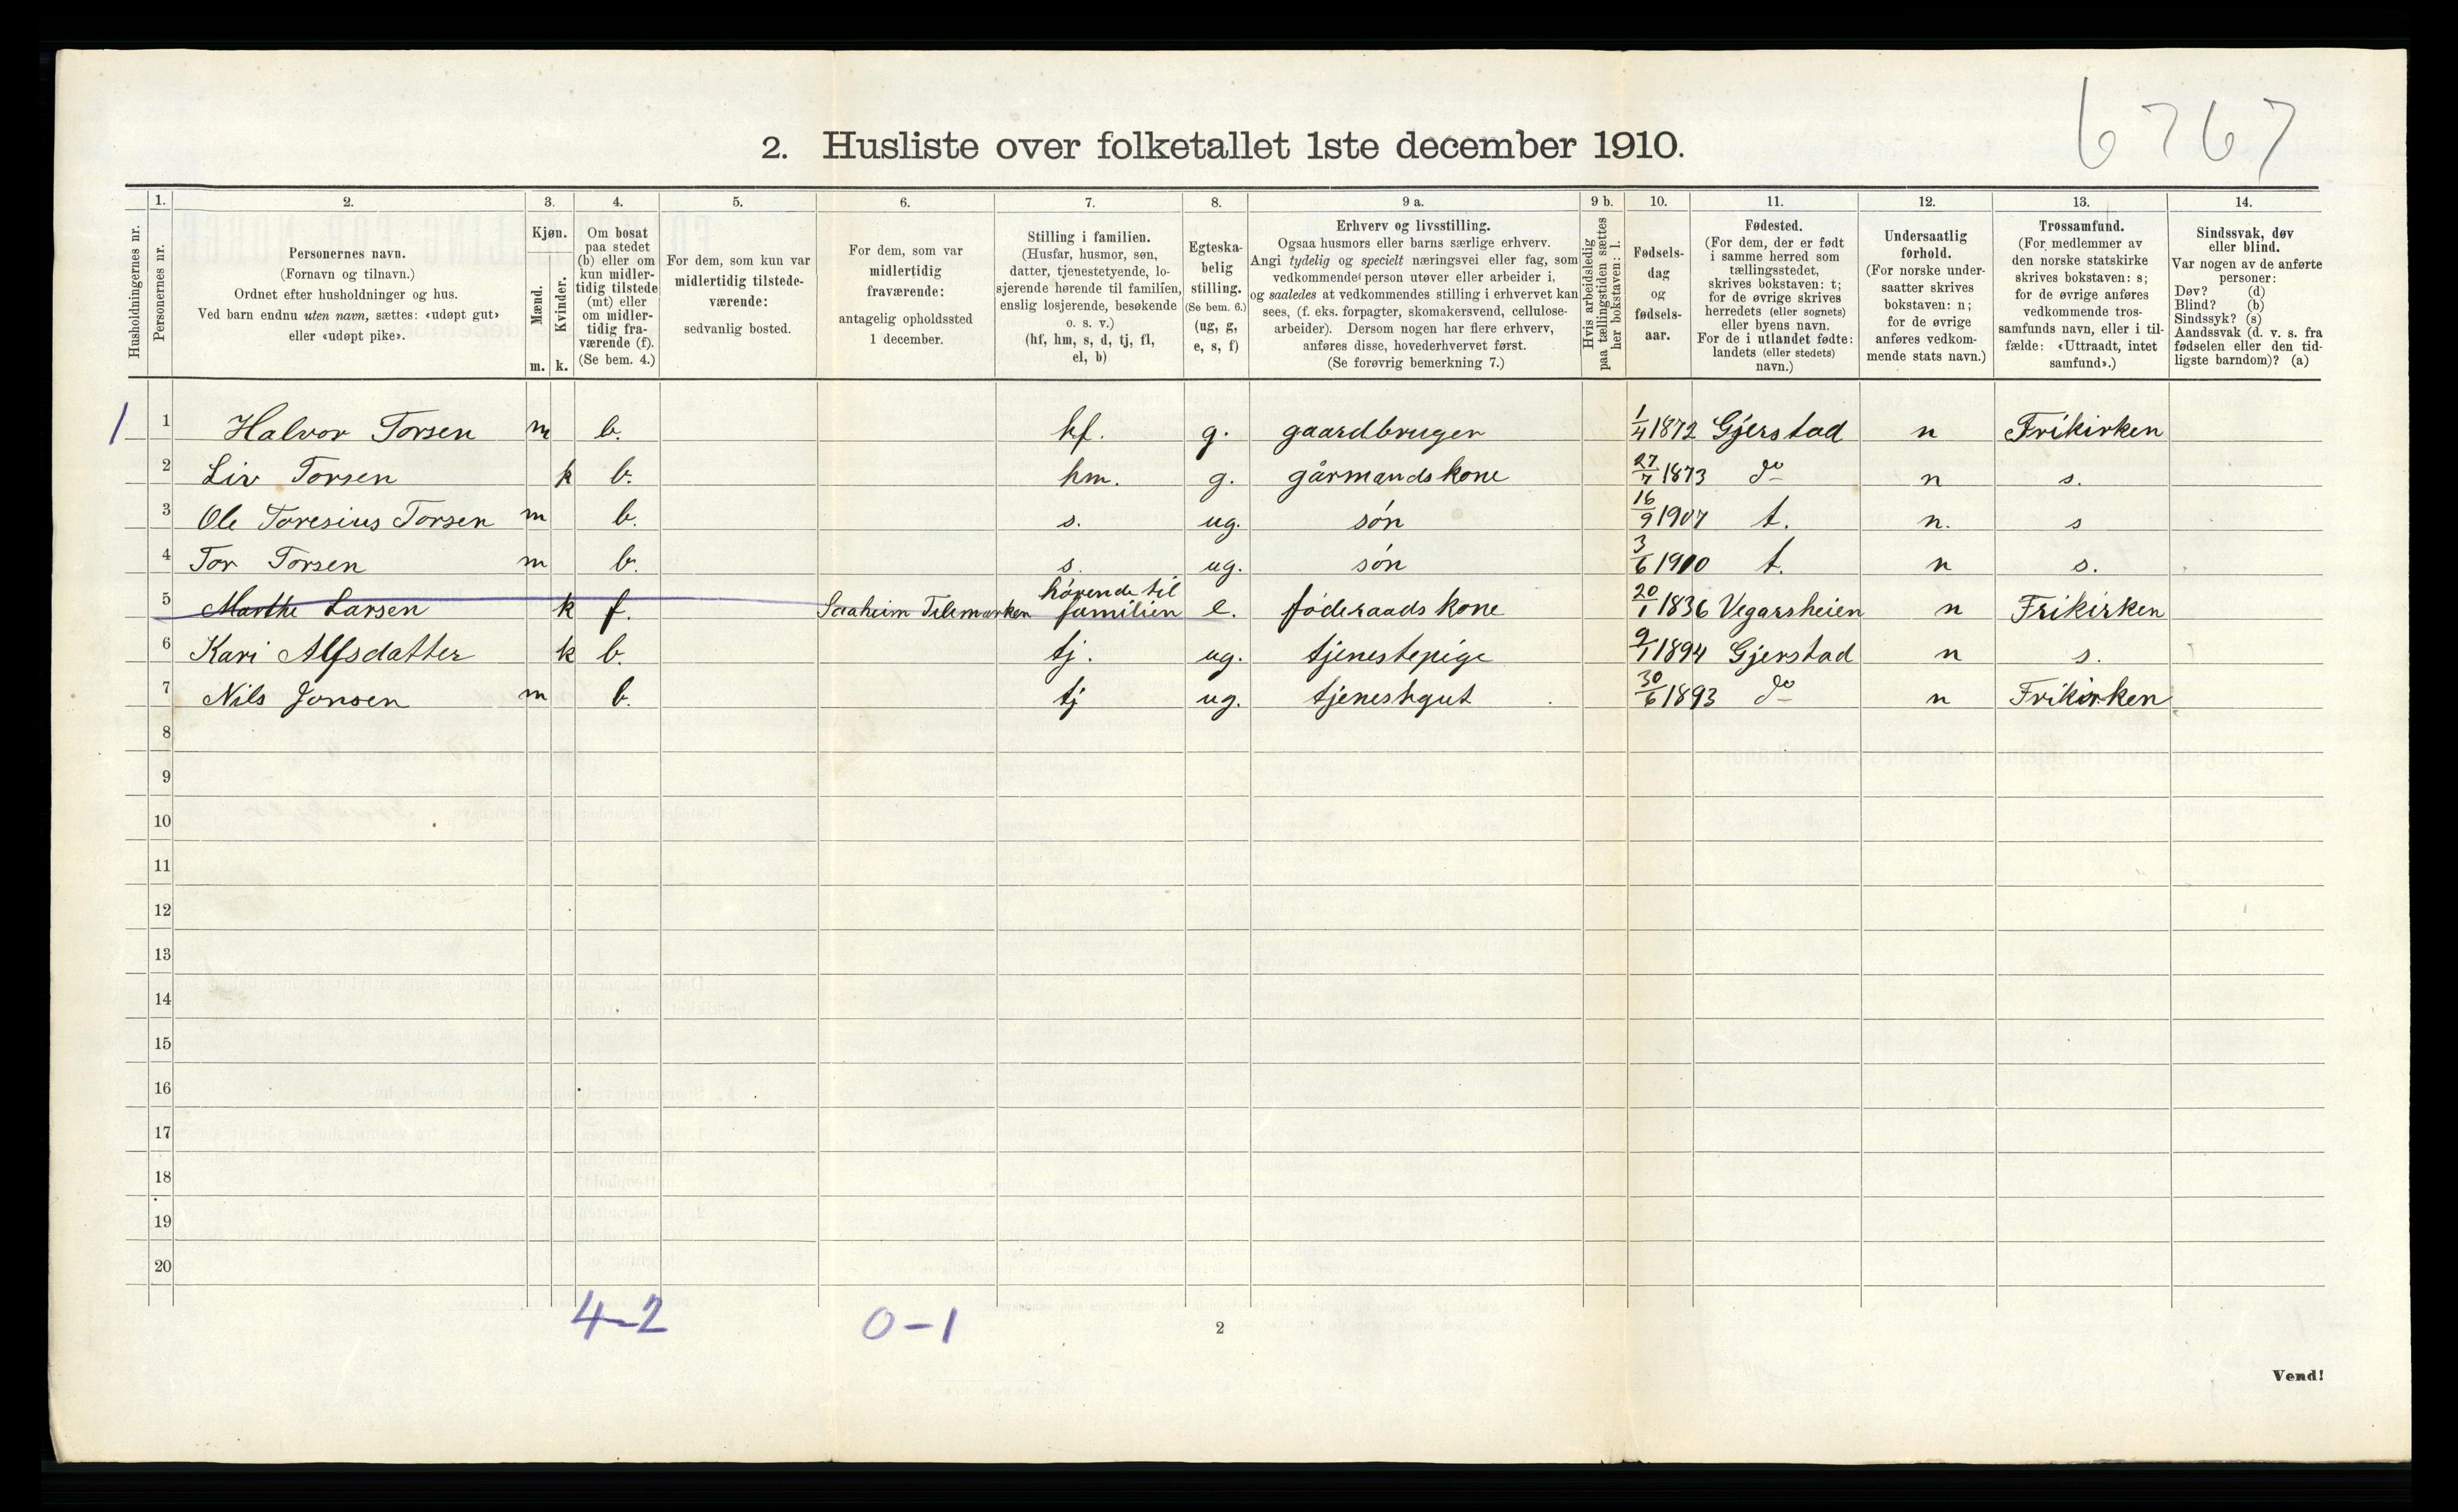 6767
2. Husliste over folketallet 1ste december 1910.
Husholdningernes nr.
1.
Personernes nr.
2.
Personernes navn.
(Fornavn og tilnavn.)
Ordnet efter husholdninger og hus.
Ved barn endnu uten navn, sættes: «udøpt gut»
eller «udøpt pike».
3.
Kjøn.
Mænd.
Kvinder.
m. k.
4.
Om bosat
paa stedet
(b) eller om
kun midler-
tidig tilstede
(mt) eller
om midler-
tidig fra-
værende (f).
(Se bem. 4.)
5.
For dem, som kun var
midlertidig tilstede-
værende:
sedvanlig bosted.
6.
For dem, som var
midlertidig
fraværende:
antagelig opholdssted
1 december.
7.
Stilling i familien.
(Husfar, husmor, søn,
datter, tjenestetyende, lo-
sjerende hørende til familien,
enslig losjerende, besøkende
o. s. v.)
(hf, hm, s, d, tj, fl,
el, b)
8.
Egteska-
belig
stilling.
(Se bem. 6.)
(ug, g,
e, s, f)
9 a.
Erhverv og livsstilling.
Ogsaa husmors eller barns særlige erhverv.
Angi tydelig og specielt næringsvei eller fag, som
vedkommende person utøver eller arbeider i,
og saaledes at vedkommendes stilling i erhvervet kan
sees, (f. eks. forpagter, skomakersvend, cellulose-
arbeider). Dersom nogen har flere erhverv,
anføres disse, hovederhvervet først.
(Se forøvrig bemerkning 7.)
9 b.
Hvis arbeidsledig
paa tællingstiden sættes
her bokstaven: l.
10.
Fødsels-
dag
og
fødsels-
aar.
11.
Fødested.
(For dem, der er født
i samme herred som
tællingsstedet,
skrives bokstaven: t;
for de øvrige skrives
herredets (eller sognets)
eller byens navn.
For de i utlandet fødte:
landets (eller stedets)
navn.)
12.
Undersaatlig
forhold.
(For norske under-
saatter skrives
bokstaven: n;
for de øvrige
anføres vedkom-
mende stats navn.)
13.
Trossamfund.
(For medlemmer av
den norske statskirke
skrives bokstaven: s;
for de øvrige anføres
vedkommende tros-
samfunds navn, eller i til-
fælde: «Uttraadt, intet
samfund».)
14.
Sindssvak, døv
eller blind.
Var nogen av de anførte
personer:
Døv? (d)
Blind? (b)
Sindssyk? (s)
Aandssvak (d. v. s. fra
fødselen eller den tid-
ligste barndom)? (a)
1 1 Halvor Torsen m b. hf. g. gaardbruger 1/4 1872 Gjerstad n Frikirken
2 Liv Torsen k b. hm. g. gårmandskone 27/7 1873 do n s.
3 Ole Toresius Torsen m b. s. ug. søn 16/9 1907 t. n. s
4 Tor Torsen m b. s. ug. søn 3/6 1910 t. n s.
5 Marthe Larsen k f. Saaheim Telemarken hørende til familien e. føderaadskone 20/1 1836 Vegarsheien n Frikirken
6 Kari Alfsdatter k b. tj. ug. tjenestepige 9/1 1894 Gjerstad n s.
7 Nils Jonsen m b. tj ug. tjenestegut 30/6 1893 do n Frikirken
8
9
10
11
12
13
14
15
16
17
18
19
20
4-2 0-1
2
Vend!